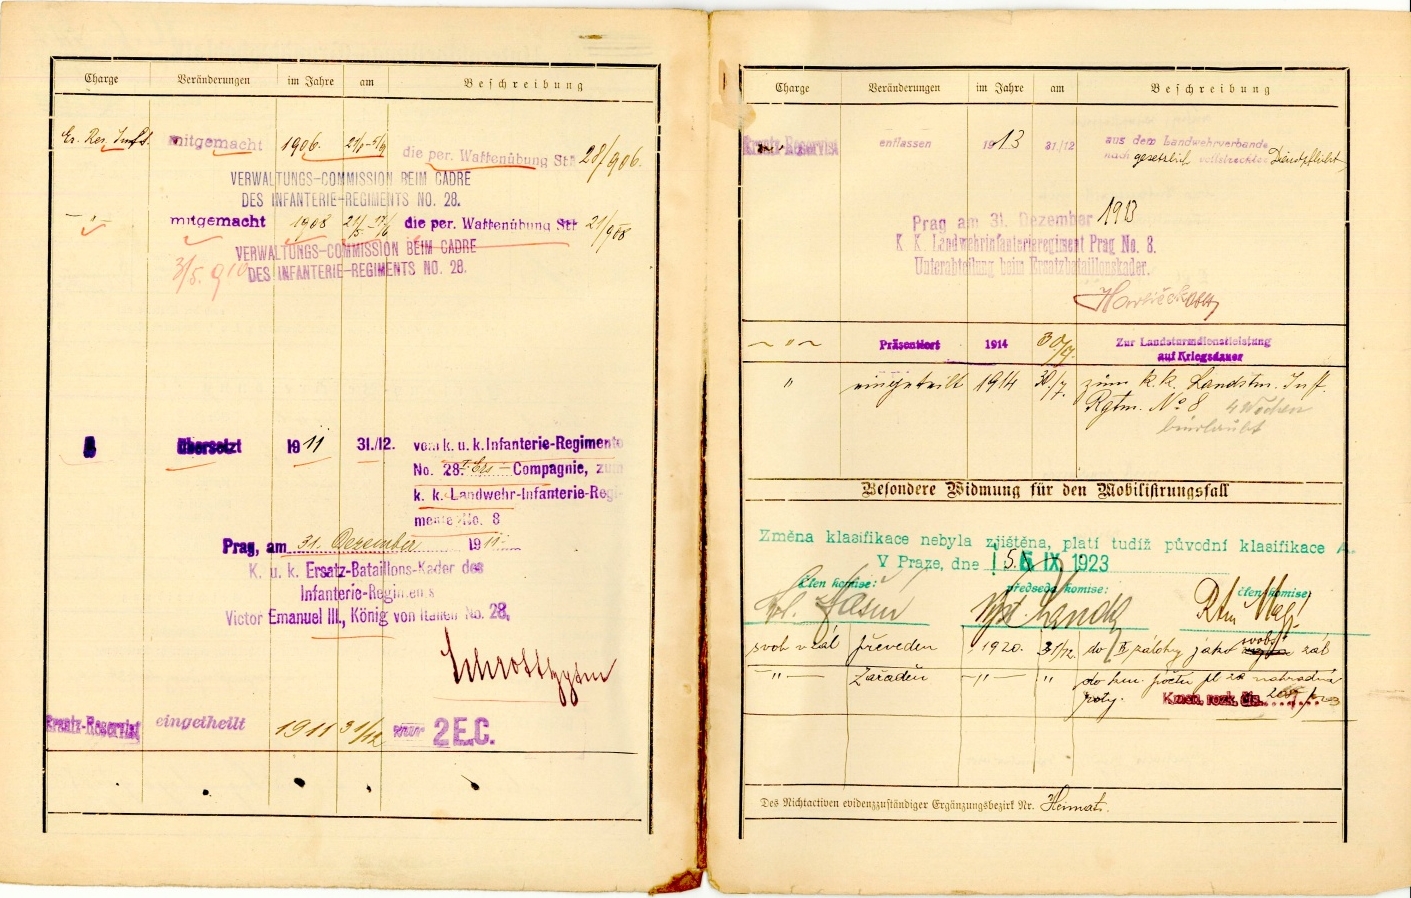 Charge Veränderungen im Jahre am Beschreibung
Er. Res. Inft.
mitgemacht 1906 die per. Waffenübung Str 28/906.
VERWALTUNGS-COMMISSION BEIM CADRE
DES INFANTERIE-REGIMENTS NO. 28.
— " — mitgemacht 1908 die per. Waffenübung Str 21/908
VERWALTUNGS-COMMISSION BEIM CADRE
DES INFANTERIE-REGIMENTS NO. 28.
31/5. 910
übersetzt 1911 31./12. vom k. u. k. Infanterie-Regimente
No. 28. Ers — Compagnie, zum
k. k. Landwehr-Infanterie-Regi-
mente No. 8
Prag, am 31. Dezember 1911
K. u. k. Ersatz-Bataillons-Kader des
Infanterie-Regiments
Victor Emanuel III., König von Italien No. 28.
Ersatz-Reservist eingetheilt 1911 31/12 zur 2 E.C.
Charge Veränderungen im Jahre am Beschreibung
Ersatz-Reservist entlassen 1913 31/12 aus dem Landwehrverbande
nach gesetzlich vollstreckter Dienstpflicht
Prag am 31. Dezember 1913
K. K. Landwehrinfanterieregiment Prag No. 8.
Unterabteilung beim Ersatzbataillonskader.
" Präsentiert 1914 30/7. Zur Landsturmdienstleistung
auf Kriegsdauer
" eingeteilt 1914 30/7. zum k. k. Landstm. Inft.
Rgtm. No 8 4 Wochen
beurlaubt
Besondere Widmung für den Mobilisirungsfall
Změna klasifikace nebyla zjištěna, platí tudíž původní klasifikace A.
V Praze, dne 15. IX. 1923
člen komise: předseda komise: člen komise:
svob v zál převeden 1920. 31/12. do II zálohy jako svob. zál
— " — zařaděn — " — " do km. počtu pl 28 náhradná
roty. Kmen. rozk. čís.
Des Nichtactiven evidenzzuständiger Ergänzungsbezirk Nr. Heimats.